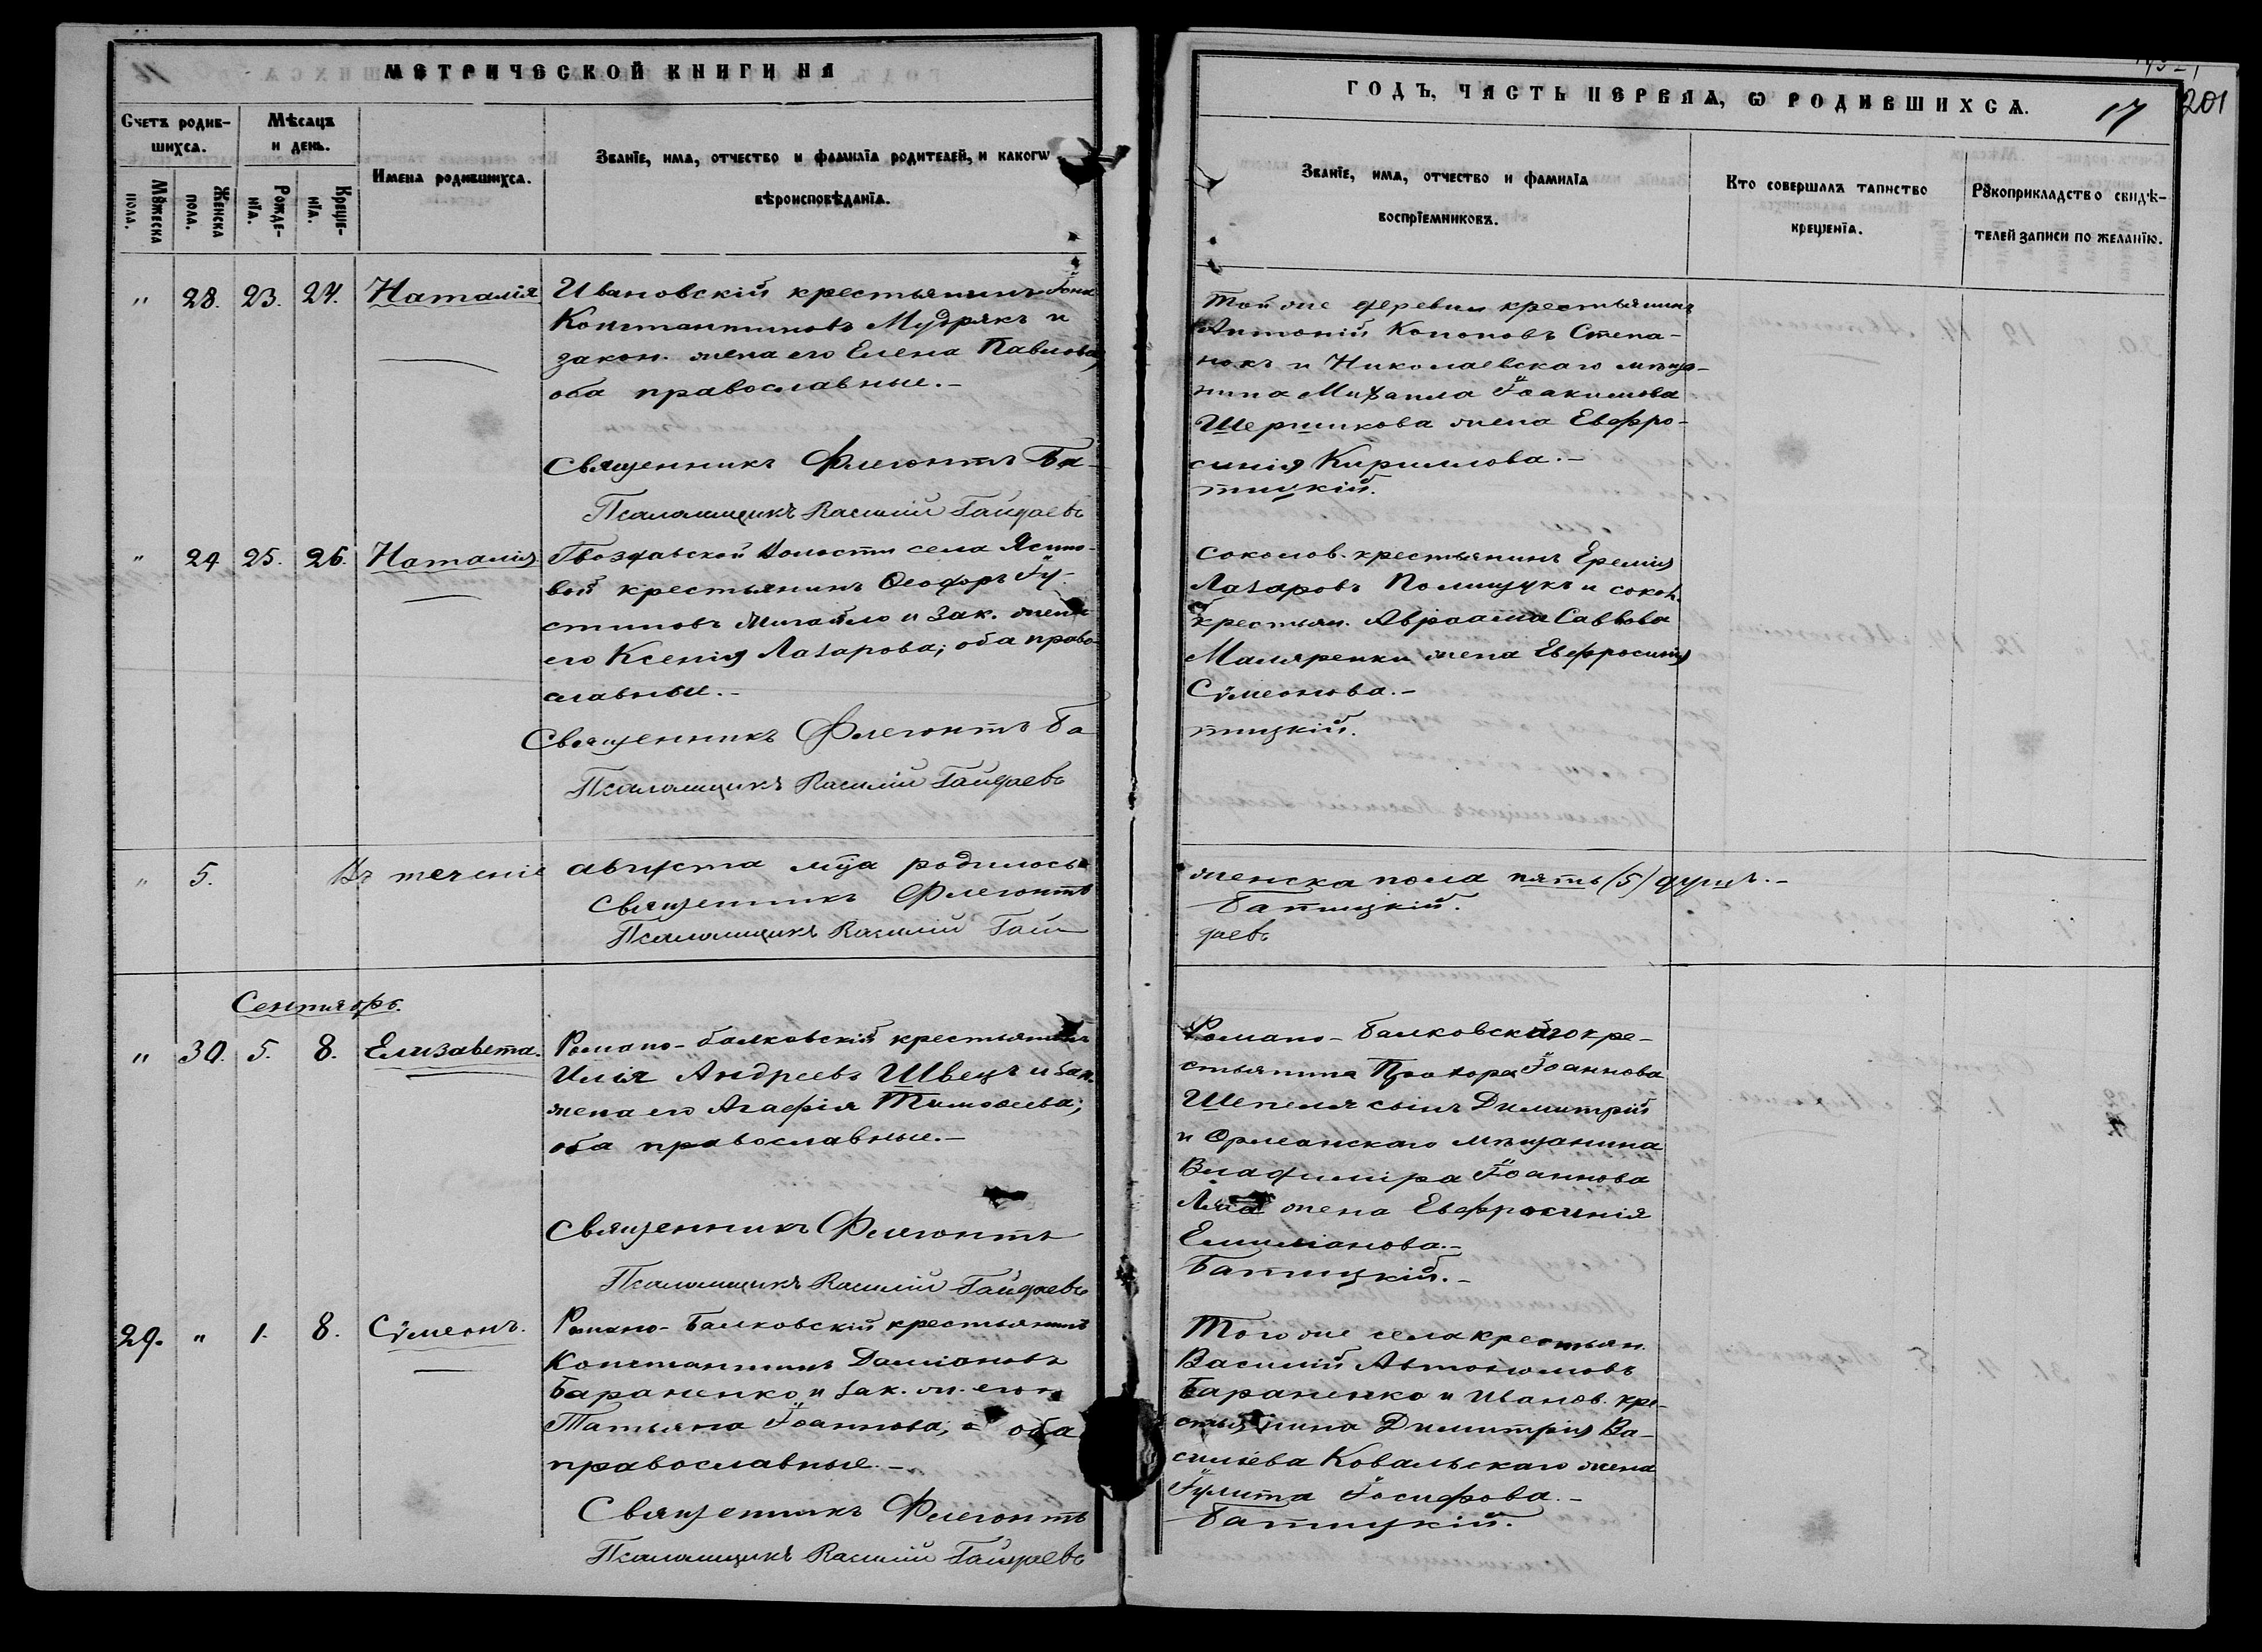 МЕТРИЧЕСКОЙ КНИГИ НА
Счетъ родив-
шихся.
Мѣсяцъ
и день.
Имена родившихся.
Званїе, имя, отчество и фамилїя родителей, и какогѡ
вѣроисповѣданїя.
Мꙋжеска
пола.
Женска
пола.
Рожде-
нїя.
Креще-
нїя.
„ 28. 23. 24. Наталія
Ивановскій крестьянинъ
Константиновъ Мудрякъ и
закон. жена его Елена Павлова,
оба православные.-
Священникъ Флегонтъ Ба-
Псаломщикъ Василій Гайдаевъ
„ 29 25. 26. Наталія
Гвоздавской волости села Ясино-
вой крестьянинъ Ѳеодоръ Іу-
стиновъ и зак. жена
его Ксенія Лазарова; оба право-
славные.-
Священникъ Флегонтъ Ба
Псаломщикъ Василій Гайдаевъ
„ 5. Въ теченіе августа мца родилось
Священникъ Флегонтъ
Псаломщикъ Василій Гай
Сентябрь.
„ 30. 5. 8. Елизавета.
Романо-балковскій крестьянинъ
Илія Андреевъ Швецъ и зак.
жена его Агафія Тимоѳеева;
оба православные.-
Священникъ Флегонтъ
Псаломщикъ Василій Гайдаевъ
29. „ 1. 8. Сѵмеонъ.
Романо-Балковскій крестьянинъ
Константинъ Даміановъ
Бараненко и зак. ж. его
Татьяна Іоаннова; оба
православные.-
Священникъ Флегонтъ
Псаломщикъ Василій Гайдаевъ
ГОДЪ, ЧАСТЬ ПЕРВАЯ, Ѡ РОДИВШИХСЯ.
17
201
Званїе, имя, отчество и фамилїя
воспрїемниковъ.
Кто совершалъ таинство
крещенїя.
Рꙋкоприкладство свидѣ-
телей записи по желанїю.
Той же деревни крестьянинъ
Антоній Кононовъ Степа-
нокъ и Николаевскаго мѣща-
нина Михаила Іоакимова
Шершикова жена Евфро-
синія Кириллова.-
тицкій.
Соколов. крестьянинъ Еремія
Лазаровъ Полищукъ и сокол.
крестьян. Авраама Саввова
Маляренки жена Евфросинія
Сѵмеонова.-
тицкій.
женска пола пять (5) душъ.-
Батицкій.
даевъ
Романо-балковскаго кре-
стьянина Прохора Іоаннова
Шепеля сынъ Димитрій
и Орлеанскаго мѣщанина
Владиміра Іоаннова
жена Евфросинія
Емиліанова.-
Батицкій.-
Того же села крестьян.
Василій Автономовъ
Бараненко и Иванов. кре-
стьянина Димитрія Ва-
силіева Ковальскаго жена
Іулита Іосифова.-
Батицкій.